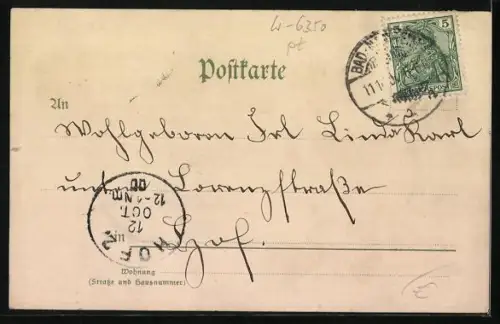 W-6350
pt
Postkarte
5
BAD
11.
An
Wohlgeboren Frl Linda Karl
untere Lorenzstraße
in Hof.
HOF 2.
12
OCT.
12-1 Nm.
00
Wohnung
(Straße und Hausnummer)